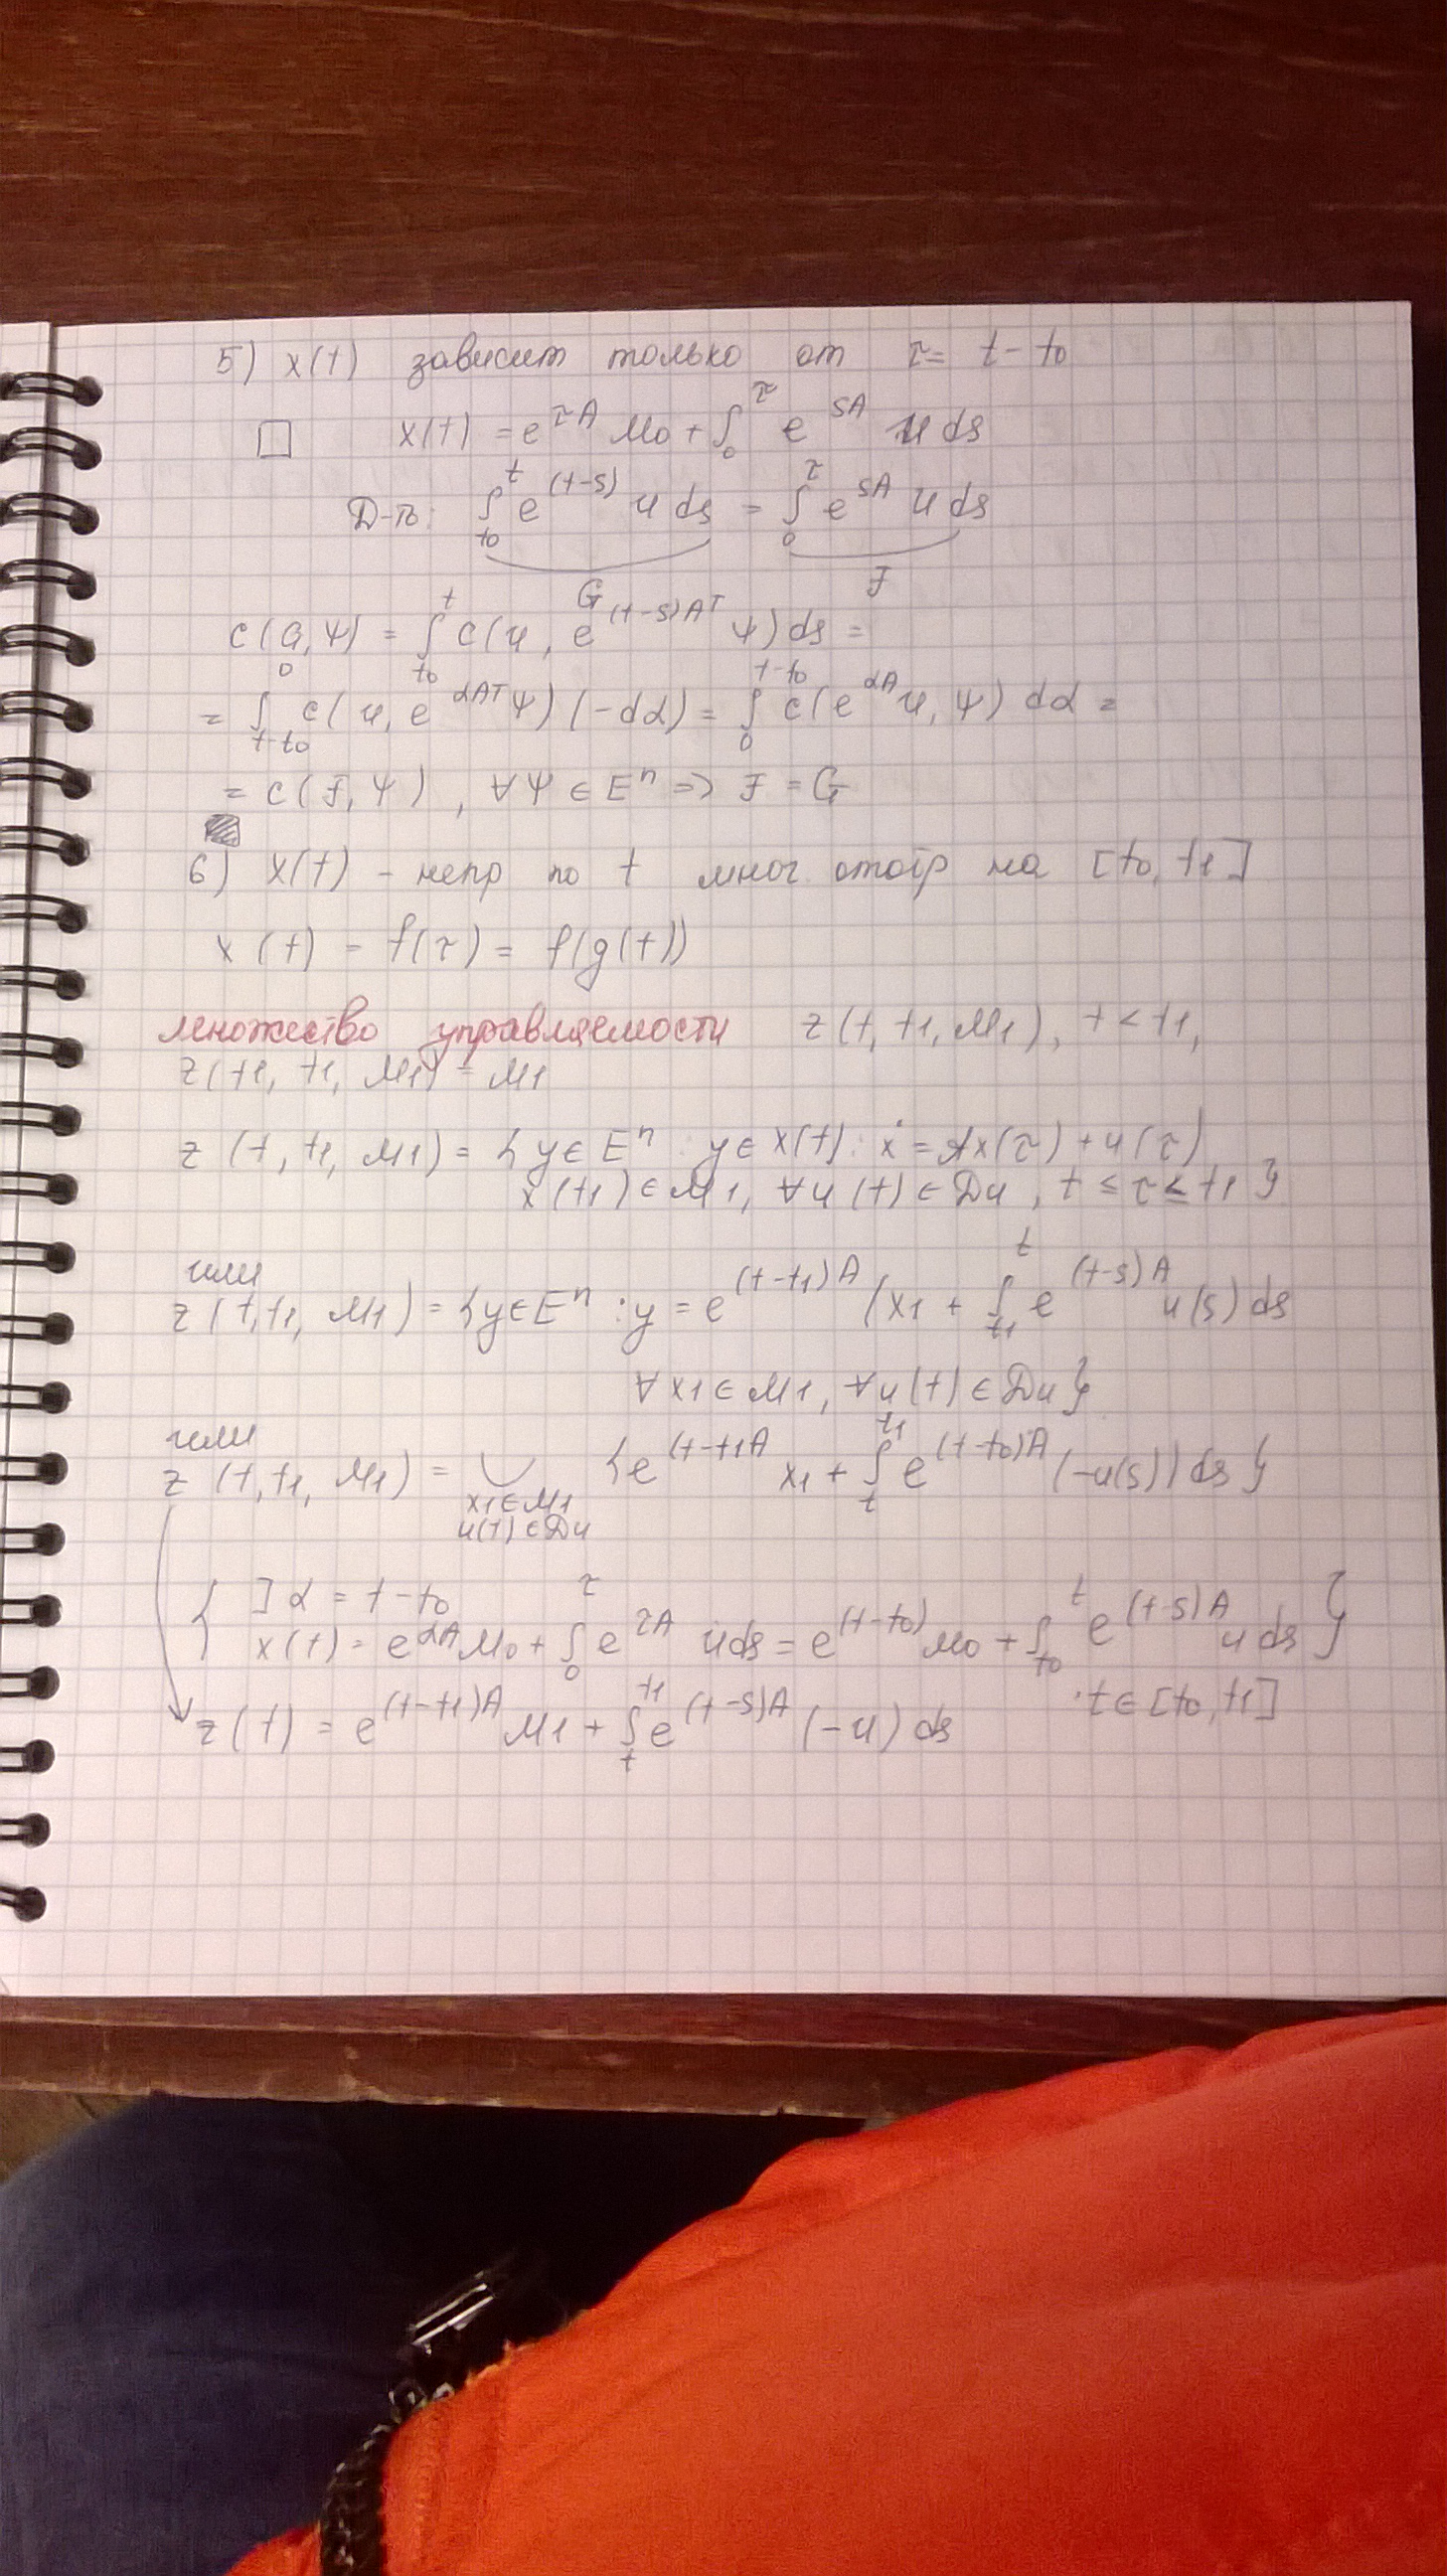 5) x(t) зависит только от τ = t - t₀
□ x(t) = e^{τA} M₀ + ∫₀^τ e^{sA} u ds
Д-ть: ∫_{t₀}^t e^{(t-s)} u ds = ∫₀^τ e^{sA} u ds
G F
c(G, ψ) = ∫_{t₀}^t c(u, e^{(t-s)Aᵀ} ψ) ds =
= ∫_{t-t₀}^0 c(u, e^{αAᵀ} ψ) (-dα) = ∫₀^{t-t₀} c(e^{αA} u, ψ) dα =
= c(F, ψ), ∀ψ ∈ Eⁿ => F = G
6) x(t) - непр по t мног. отобр на [t₀, t₁]
x(t) = f(τ) = f(g(t))
множество управляемости z(t, t₁, M₁), t < t₁,
z(t₁, t₁, M₁) = M₁
z(t, t₁, M₁) = {y ∈ Eⁿ : y ∈ x(t) : ẋ = Ax(τ) + u(τ)
x(t₁) ∈ M₁, ∀u(t) ∈ Du, t ≤ τ ≤ t₁}
или
z(t, t₁, M₁) = {y ∈ Eⁿ : y = e^{(t-t₁)A} (x₁ + ∫_{t₁}^t e^{(t-s)A} u(s) ds
∀x₁ ∈ M₁, ∀u(t) ∈ Du}
или
z(t, t₁, M₁) = ∪_{x₁∈M₁ u(t)∈Du} {e^{(t-t₁A} x₁ + ∫_t^{t₁} e^{(t-t₀)A} (-u(s)) ds}
{ ] α = t - t₀
x(t) = e^{αA} M₀ + ∫₀^τ e^{τA} u ds = e^{(t-t₀)} M₀ + ∫_{t₀}^t e^{(t-s)A} u ds }
t ∈ [t₀, t₁]
z(t) = e^{(t-t₁)A} M₁ + ∫_t^{t₁} e^{(t-s)A} (-u) ds